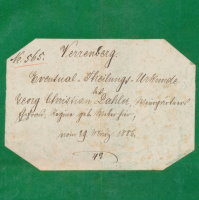 No. 565. Verrenberg.
Eventual-Theilungs-Urkunde
des
Georg Christian Dahler, Weingärtners
Ehefrau, Regine geb.
vom 29. März 1886.